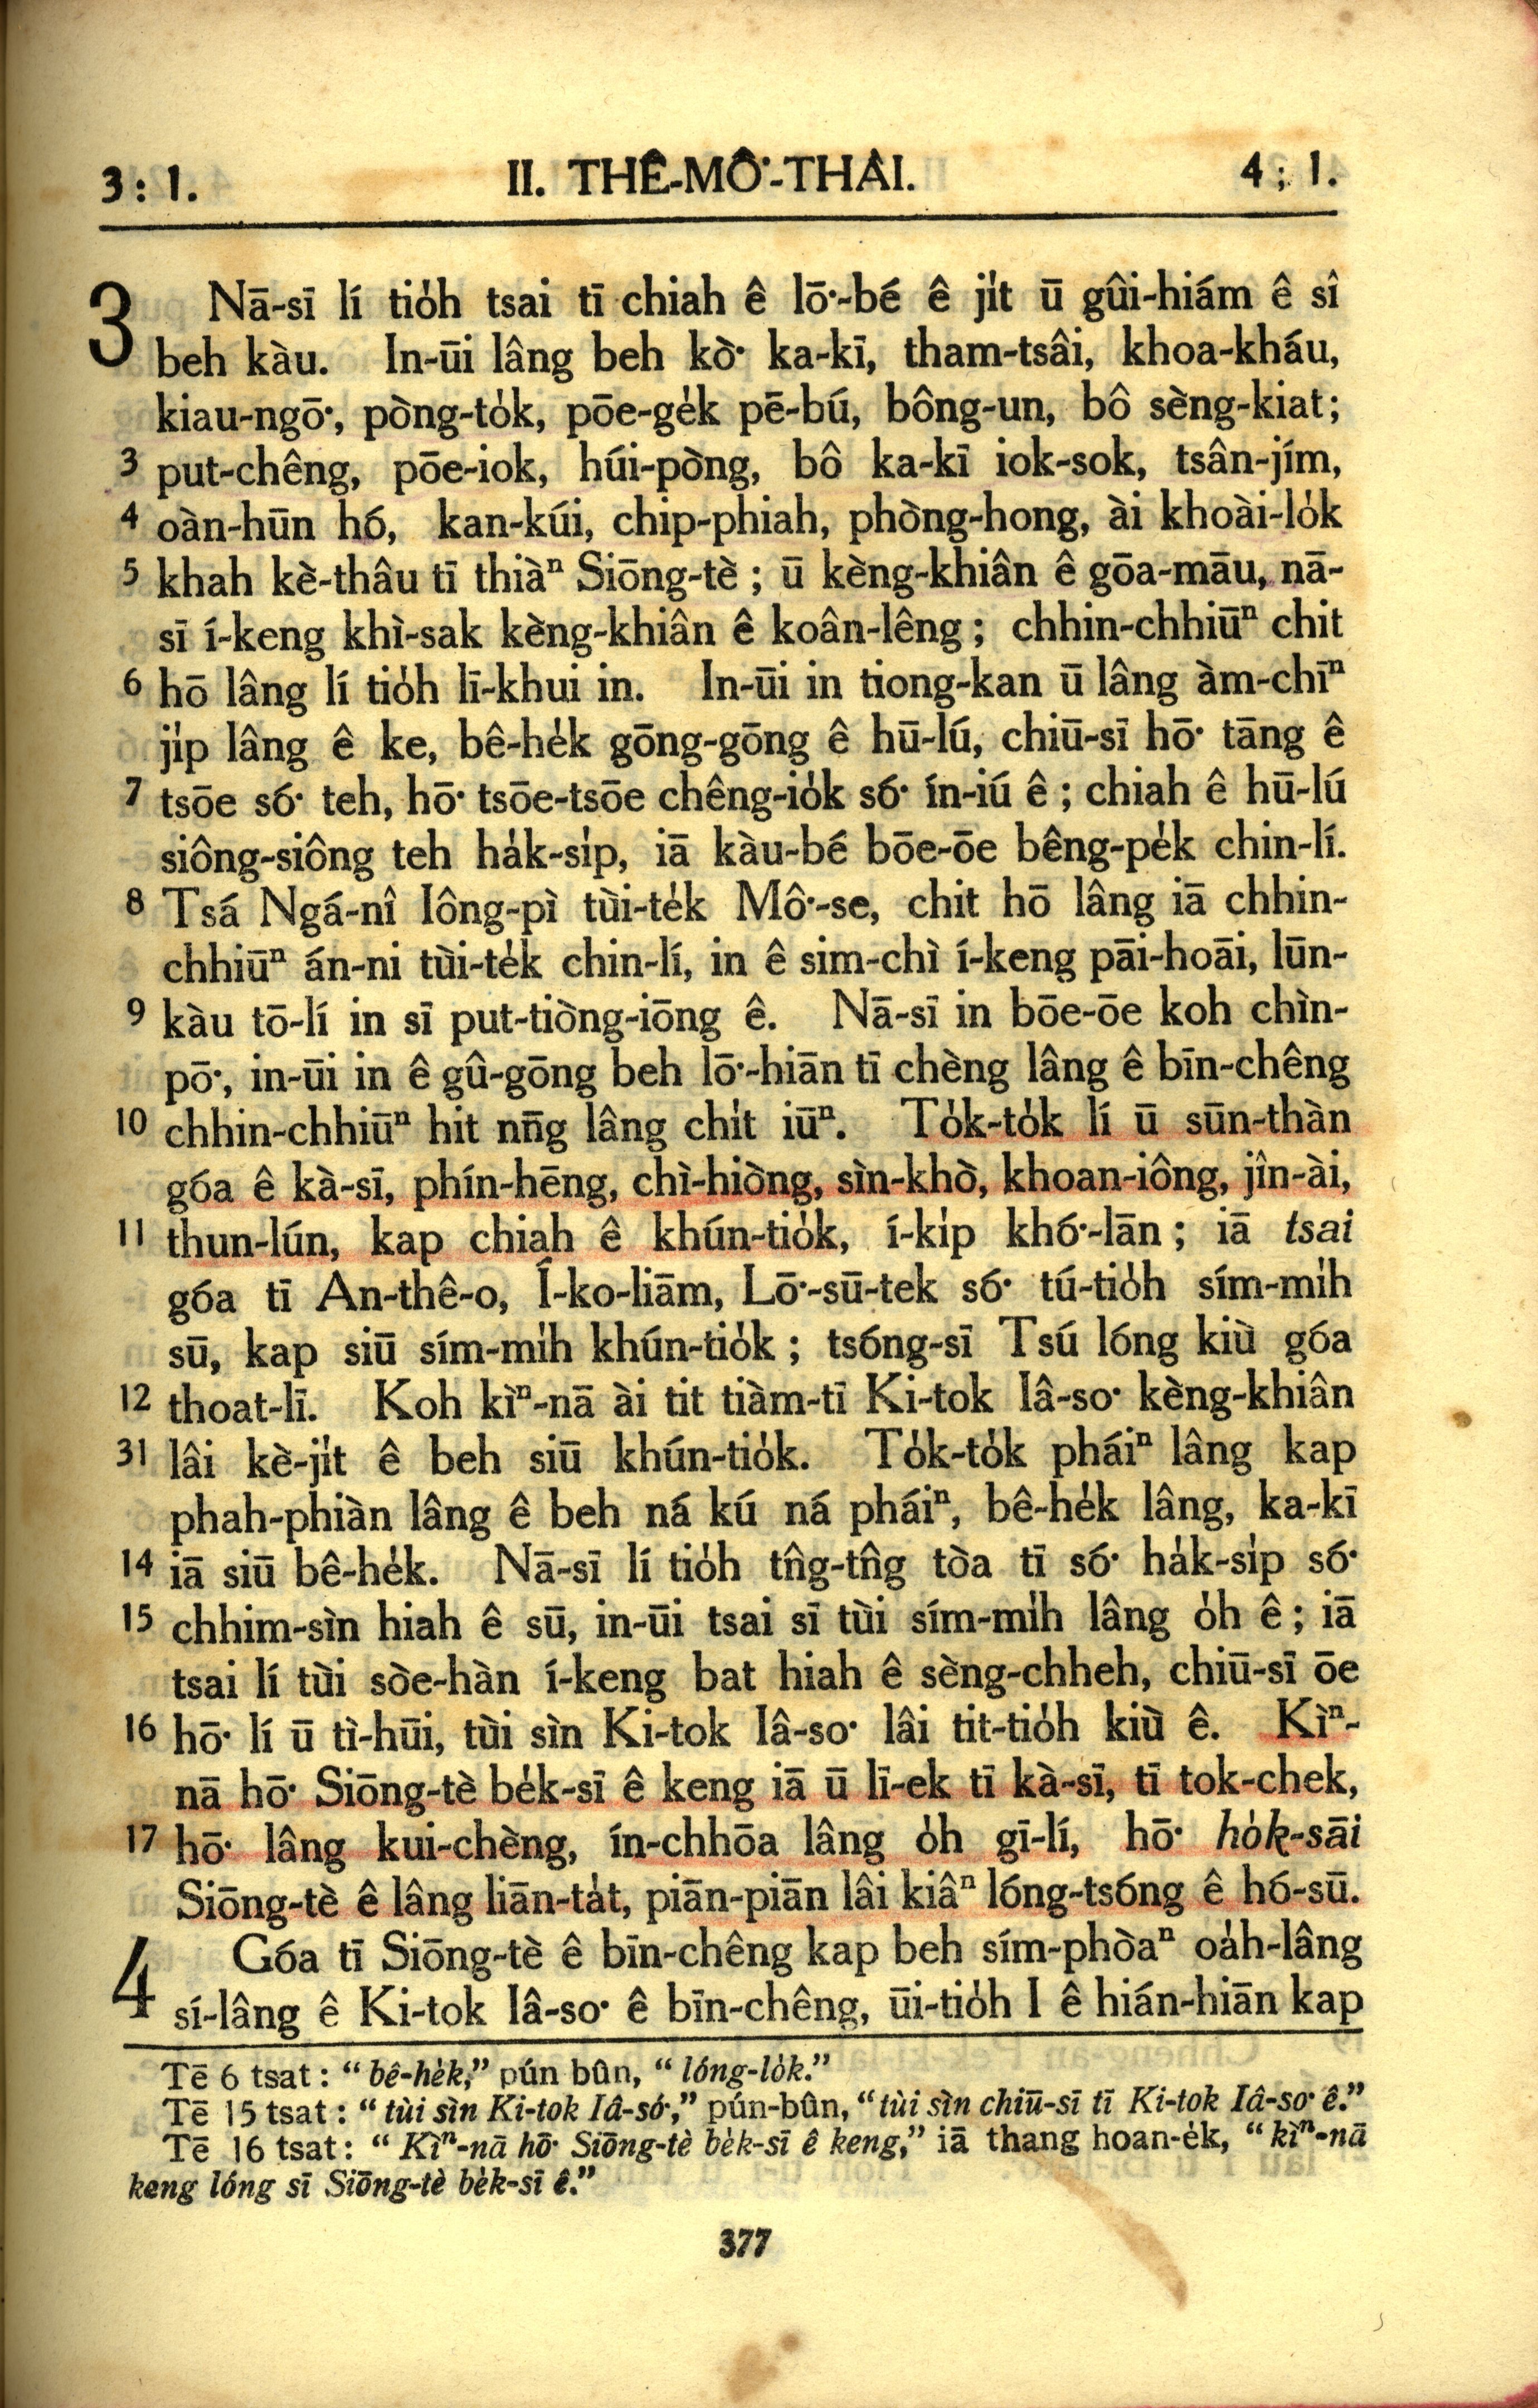 3 : 1.
II. THÊ-MÔ͘-THÂI.
4 ; 1.
3 Nā-sī lí tio̍h tsai tī chiah ê lō͘-bé ê ji̍t ū gûi-hiám ê sî
beh kàu. In-ūi lâng beh kò͘ ka-kī, tham-tsâi, khoa-kháu,
kiau-ngō͘, pòng-to̍k, pōe-ge̍k pē-bú, bông-un, bô sèng-kiat;
3 put-chêng, pōe-iok, húi-pòng, bô ka-kī iok-sok, tsân-jím,
4 oàn-hūn hó, kan-kúi, chip-phiah, phòng-hong, ài khoài-lo̍k
5 khah kè-thâu tī thiàⁿ Siōng-tè ; ū kèng-khiân ê gōa-māu, nā-
sī í-keng khì-sak kèng-khiân ê koân-lêng ; chhin-chhiūⁿ chit
6 hō lâng lí tio̍h lī-khui in. In-ūi in tiong-kan ū lâng àm-chīⁿ
ji̍p lâng ê ke, bê-he̍k gōng-gōng ê hū-lú, chiū-sī hō͘ tāng ê
7 tsōe só͘ teh, hō͘ tsōe-tsōe chêng-io̍k só͘ ín-iú ê ; chiah ê hū-lú
siông-siông teh ha̍k-si̍p, iā kàu-bé bōe-ōe bêng-pe̍k chin-lí.
8 Tsá Ngá-nî Iông-pì tùi-te̍k Mô͘-se, chit hō lâng iā chhin-
chhiūⁿ án-ni tùi-te̍k chin-lí, in ê sim-chì í-keng pāi-hoāi, lūn-
9 kàu tō-lí in sī put-tiòng-iōng ê. Nā-sī in bōe-ōe koh chìn-
pō͘, in-ūi in ê gû-gōng beh lō͘-hiān tī chèng lâng ê bīn-chêng
10 chhin-chhiūⁿ hit nn̄g lâng chi̍t iūⁿ. To̍k-to̍k lí ū sūn-thàn
góa ê kà-sī, phín-hēng, chì-hiòng, sìn-khò, khoan-iông, jîn-ài,
11 thun-lún, kap chiah ê khún-tio̍k, í-ki̍p khó͘-lān ; iā tsai
góa tī An-thê-o, Í-ko-liām, Lō͘-sū-tek só͘ tú-tio̍h sím-mi̍h
sū, kap siū sím-mi̍h khún-tio̍k ; tsóng-sī Tsú lóng kiù góa
12 thoat-lī. Koh kìⁿ-nā ài tit tiàm-tī Ki-tok Iâ-so͘ kèng-khiân
31 lâi kè-ji̍t ê beh siū khún-tio̍k. To̍k-to̍k pháiⁿ lâng kap
phah-phiàn lâng ê beh ná kú ná pháiⁿ, bê-he̍k lâng, ka-kī
14 iā siū bê-he̍k. Nā-sī lí tio̍h tn̂g-tn̂g tòa tī só͘ ha̍k-si̍p só͘
15 chhim-sìn hiah ê sū, in-ūi tsai sī tùi sím-mi̍h lâng o̍h ê ; iā
tsai lí tùi sòe-hàn í-keng bat hiah ê sèng-chheh, chiū-sī ōe
16 hō͘ lí ū tì-hūi, tùi sìn Ki-tok Iâ-so͘ lâi tit-tio̍h kiù ê. Kìⁿ-
nā hō͘ Siōng-tè be̍k-sī ê keng iā ū lī-ek tī kà-sī, tī tok-chek,
17 hō͘ lâng kui-chèng, ín-chhōa lâng o̍h gī-lí, hō͘ ho̍k-sāi
Siōng-tè ê lâng liān-ta̍t, piān-piān lâi kiâⁿ lóng-tsóng ê hó-sū.
4 Góa tī Siōng-tè ê bīn-chêng kap beh sím-phòaⁿ oa̍h-lâng
sí-lâng ê Ki-tok Iâ-so͘ ê bīn-chêng, ūi-tio̍h I ê hián-hiān kap
Tē 6 tsat : “ bê-he̍k,” pún bûn, “ lóng-lo̍k.”
Tē 15 tsat : “ tùi sìn Ki-tok Iâ-só͘,” pún-bûn, “ tùi sìn chiū-sī tī Ki-tok Iâ-so͘ ê.”
Tē 16 tsat : “ Kìⁿ-nā hō͘ Siōng-tè be̍k-sī ê keng,” iā thang hoan-e̍k, “ kìⁿ-nā
keng lóng sī Siōng-tè be̍k-sī ê.”
377